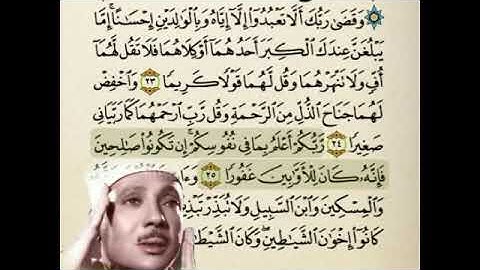 ۞ وَقَضَىٰ رَبُّكَ أَلَّا تَعْبُدُوٓا۟ إِلَّآ إِيَّاهُ وَبِٱلْوَٰلِدَيْنِ إِحْسَٰنًا ۚ إِمَّا
يَبْلُغَنَّ عِندَكَ ٱلْكِبَرَ أَحَدُهُمَآ أَوْ كِلَاهُمَا فَلَا تَقُل لَّهُمَآ
أُفٍّ وَلَا تَنْهَرْهُمَا وَقُل لَّهُمَا قَوْلًا كَرِيمًا ٢٣ وَٱخْفِضْ
لَهُمَا جَنَاحَ ٱلذُّلِّ مِنَ ٱلرَّحْمَةِ وَقُل رَّبِّ ٱرْحَمْهُمَا كَمَا رَبَّيَانِى
صَغِيرًا ٢٤ رَّبُّكُمْ أَعْلَمُ بِمَا فِى نُفُوسِكُمْ ۚ إِن تَكُونُوا۟ صَٰلِحِينَ
فَإِنَّهُۥ كَانَ لِلْأَوَّٰبِينَ غَفُورًا ٢٥
وَٱلْمِسْكِينَ وَٱبْنَ ٱلسَّبِيلِ وَلَا تُبَذِّرْ
كَانُوٓا۟ إِخْوَٰنَ ٱلشَّيَٰطِينِ ۖ وَكَانَ